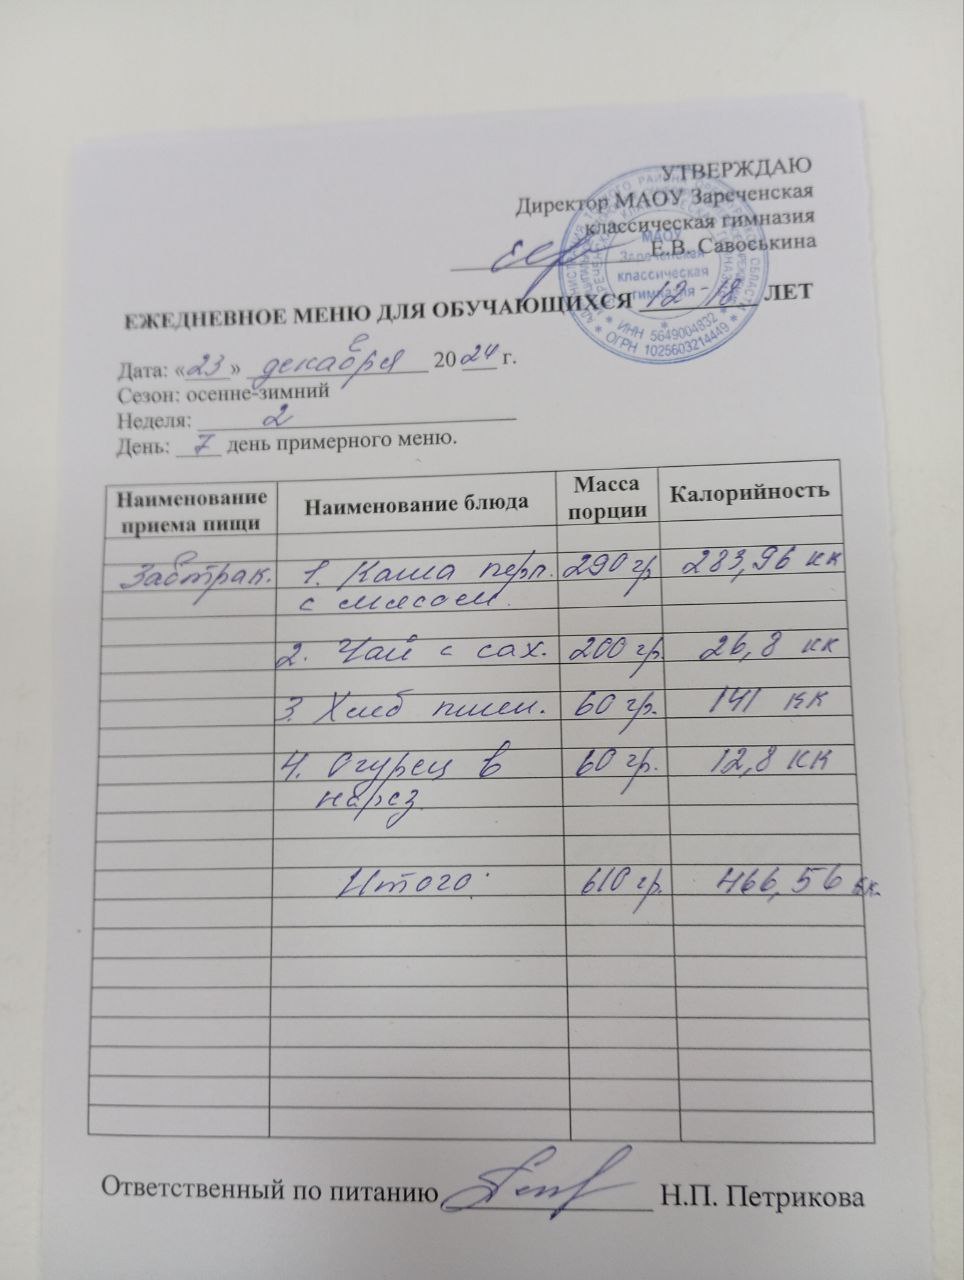 УТВЕРЖДАЮ
Директор МАОУ Зареченская
классическая гимназия
Е.В. Савоськина
МАОУ
Зареченская
классическая
гимназия
* ИНН 5649004832 *
* ОГРН 1025603214449 *
ЕЖЕДНЕВНОЕ МЕНЮ ДЛЯ ОБУЧАЮЩИХСЯ 12-18 ЛЕТ
Дата: «23» декабря 2024 г.
Сезон: осенне-зимний
Неделя: 2
День: 7 день примерного меню.
Наименование приема пищи Наименование блюда Масса порции Калорийность
Завтрак. 1. Каша перл. 290 гр 283,96 кк
с мясом.
2. Чай с сах. 200 гр. 26,8 кк
3. Хлеб пшен. 60 гр. 141 кк
4. Огурец в 60 гр. 12,8 кк
нарез.
Итого 610 гр. 466,56 кк.
Ответственный по питанию Н.П. Петрикова